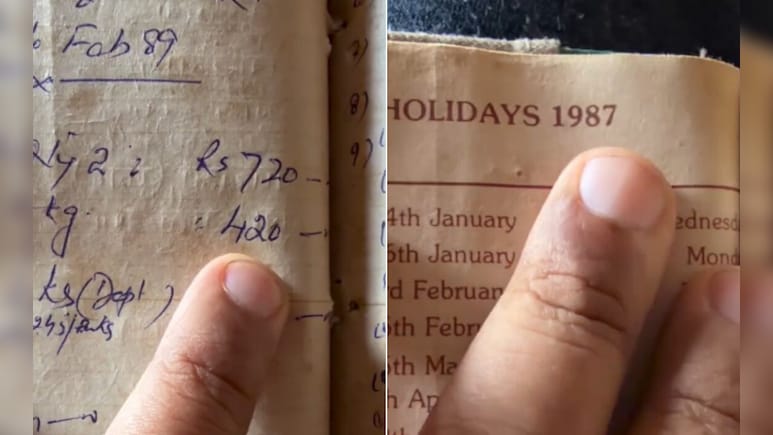 Feb 89
2 : Rs 720 —
kg. : 420 —
ks (Dept)
8)
9)
HOLIDAYS 1987
4th January ednesd
6th January Mond
d Februar
th Febr
th Ma
h Ap